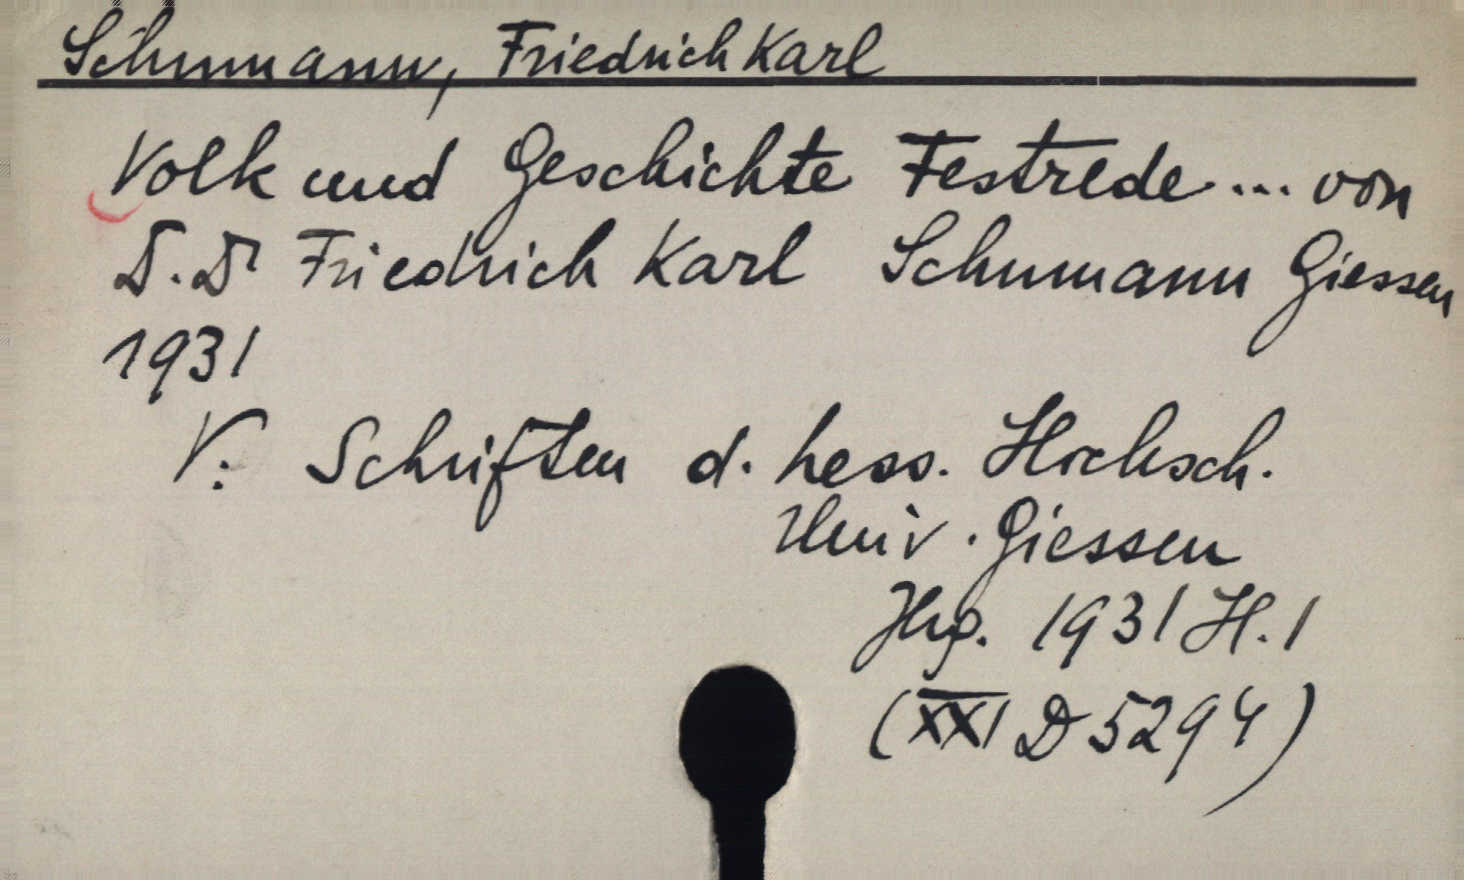 Schumann, Friedrich Karl
Volk und Geschichte Festrede ... von
D. Dr Friedrich Karl Schumann Giessen
1931
V: Schriften d. hess. Hochsch.
Univ. Giessen
Jhg. 1931 H. 1
(XXI D 5294)